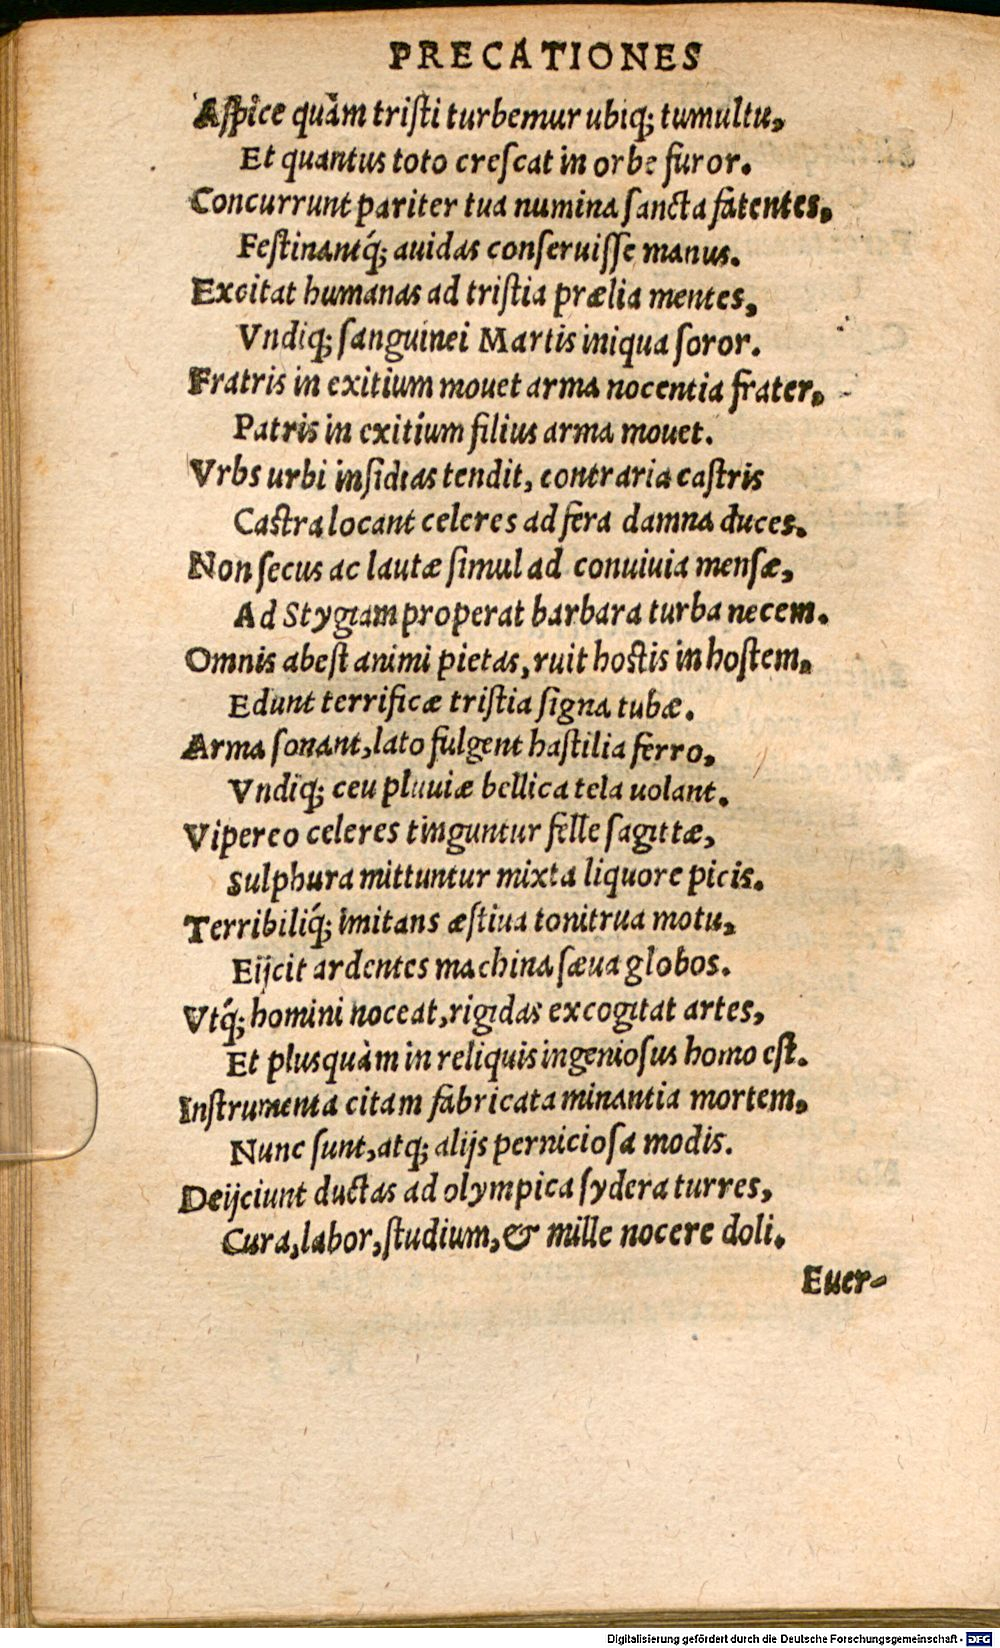 PRECATIONES
Aſpice quàm triſti turbemur ubiq; tumultu,
Et quantus toto creſcat in orbe furor.
Concurrunt pariter tua numina ſancta fatentes,
Feſtinantq́; auidas conſeruiſſe manus.
Excitat humanas ad triſtia prælia mentes,
Vndiq; ſanguinei Martis iniqua ſoror.
Fratris in exitium mouet arma nocentia frater,
Patris in exitium filius arma mouet.
Vrbs urbi inſidias tendit, contraria caſtris
Caſtra locant celeres ad fera damna duces.
Non ſecus ac lautæ ſimul ad conuiuia menſæ,
Ad Stygiam properat barbara turba necem.
Omnis abeſt animi pietas, ruit hoſtis in hoſtem,
Edunt terrificæ triſtia ſigna tubæ.
Arma ſonant, lato fulgent haſtilia ferro,
Vndiq; ceu pluuiæ bellica tela uolant.
Vipereo celeres tinguntur felle ſagittæ,
Sulphura mittuntur mixta liquore picis.
Terribiliq́; imitans æſtiua tonitrua motu,
Eijcit ardentes machina ſæua globos.
Vtq́; homini noceat, rigidas excogitat artes,
Et plusquàm in reliquis ingenioſus homo eſt.
Inſtrumenta citam fabricata minantia mortem,
Nunc ſunt, atq; alijs pernicioſa modis.
Deijciunt ductas ad olympica ſydera turres,
Cura, labor, ſtudium, & mille nocere doli.
Euer-
Digitalisierung gefördert durch die Deutsche Forschungsgemeinschaft - DFG